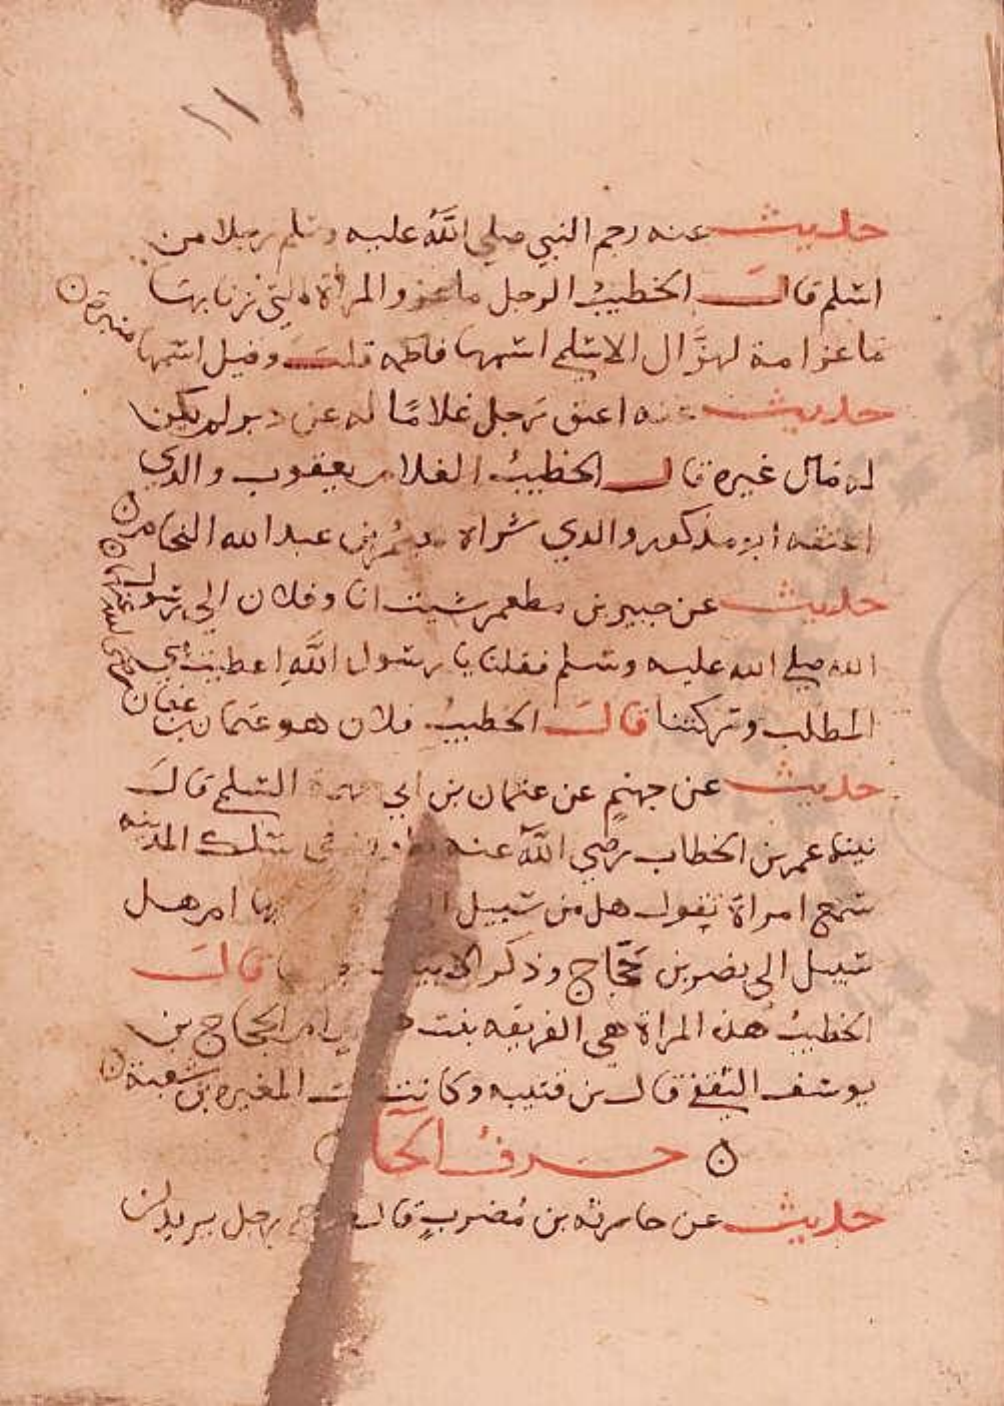 ١١
حديث عنه رجم النبي صلي الله عليه وسلم رجلا من
اسلم قال الخطيبُ الرجل ماعز والمراة التي زنا بها
ماعز امة لهزَّال الاسلمي اسمها فاطمه قلت وقيل اسمها منيرة
حديث عنه اعتق رجل غلامًا له عن دبر لم يكن
له مال غيره قال الخطيبُ الغلام يعقوب والذي
اعتقه ابو مذكور والذي شراه نعيم بن عبد الله النحام
حديث عن جبير بن مطعم مشيت انا وفلان الي رسول
الله صلي الله عليه وسلم فقلنا يا رسول اللَّهِ اعطيت بني
المطلب وتركتنا قال الخطيبُ فلان هو عثمان بن عفان
حديث عن جهنمٍ عن عثمان بن ابي السلمي قال
بينا عمر بن الخطاب رضي الله عنه يطوف في سكك المدينه
سمع امراة تقول هل من سبيل بها ام هل
سبيل الى نصر بن حجاج وذكر الابيات قال
الخطيبُ هذه المراة هي الفريعه بنت ام الحجاج بن
يوسف الثقفي قال بن قتيبه وكانت المغيره بن شعبة
حرفُ الحآ
حديث عن حارثه بن مُضربٍ قال رجل يريد ان